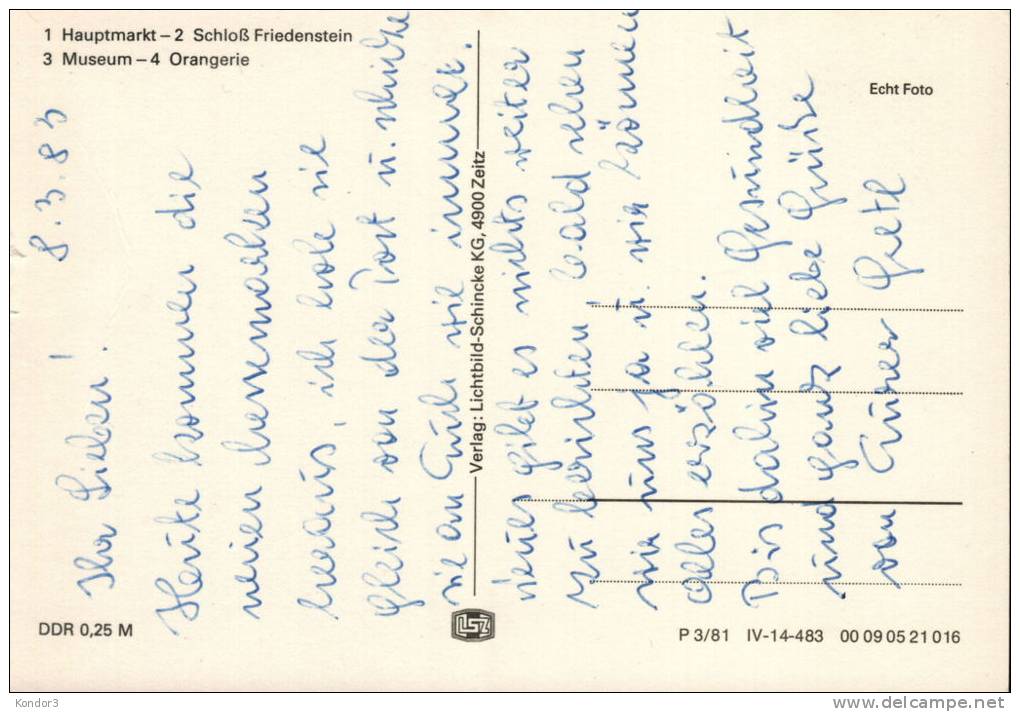 1 Hauptmarkt – 2 Schloß Friedenstein
3 Museum – 4 Orangerie
Echt Foto
8.3.83
Ihr Lieben!
Heute kommen die
neuen Briefmarken
heraus, ich hole sie
gleich von der Post u. schicke
sie an Euch wie immer.
neues gibt es nichts weiter
zu berichten bald sehen
wir uns ja u. wir können
alles erzählen.
Bis dahin viel Gesundheit
und ganz liebe Grüße
von Eurer
Verlag: Lichtbild-Schincke KG, 4900 Zeitz
DDR 0,25 M
LSZ
P 3/81 IV-14-483 00 09 05 21 016
Kondor3
delcampe.net